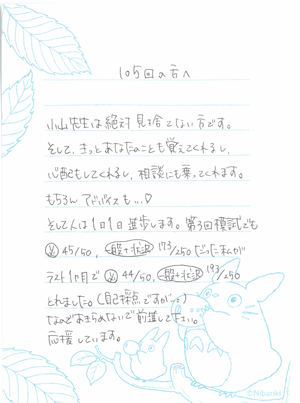 105回の方へ
小山先生は絶対見捨てない方です。
そして、きっとあなたのことも覚えてくれるし、
心配もしてくれるし、相談にも乗ってくれます。
もちろんアドバイスも…♡
そして人は1日1日進歩します。第3回模試でも
必 45/50, 般+状況 173/250だった私が
ラスト1ヶ月で 必 44/50, 般+状況 193/250
とれました。(自己採点ですが…)
なのであきらめないで前進して下さい。
応援しています。
©Nibariki